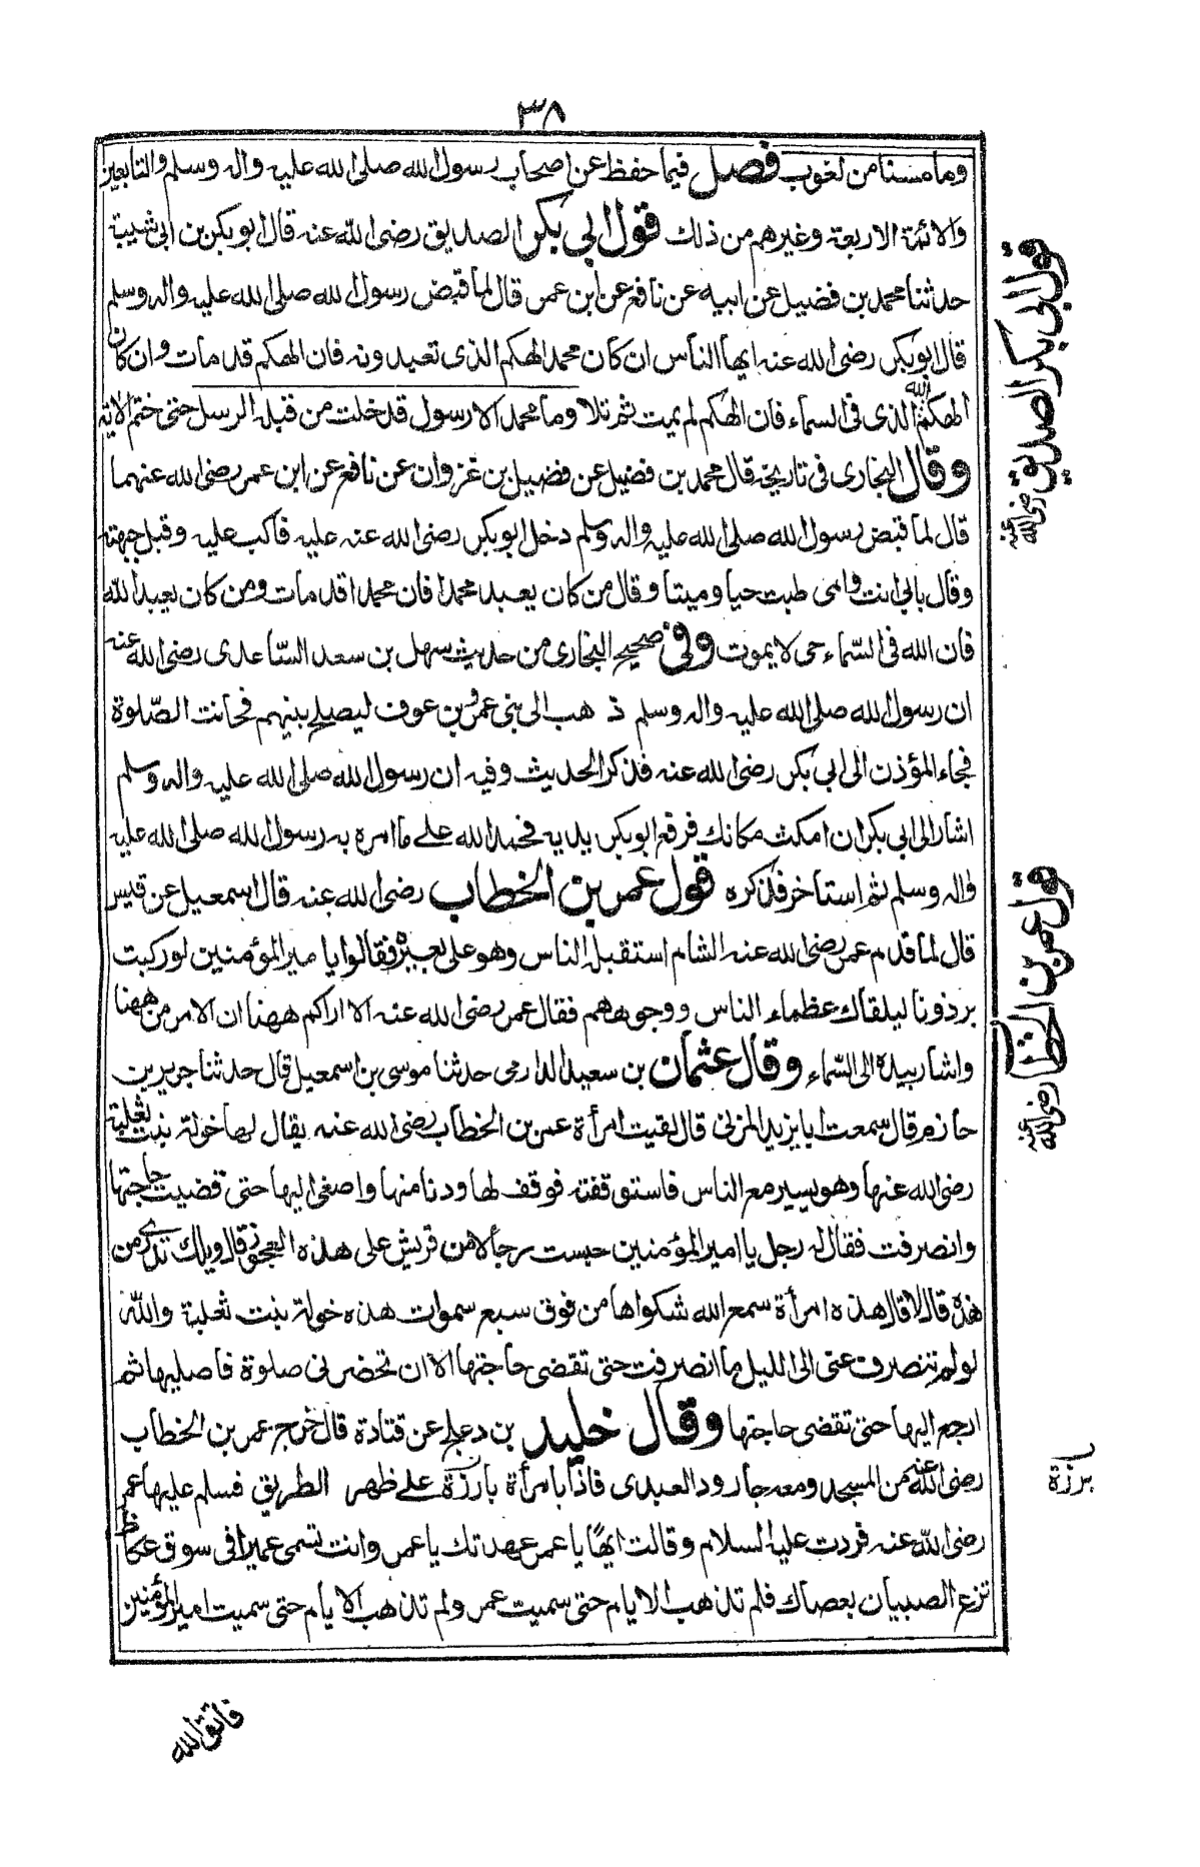 ٣٨
وما مسنا من لغوب فصل فيما حفظ عن اصحاب رسول الله صلى الله عليه واله وسلم والتابعين
والائمة الاربعة وغيرهم من ذلك قول ابي بكر الصديق رضى الله عنه قال ابو بكر بن ابى شيبة
حدثنا محمد بن فضيل عن ابيه عن نافع عن ابن عمر قال لما قبض رسول الله صلى الله عليه واله وسلم
قال ابو بكر رضى الله عنه ايها الناس ان كان محمد الهكم الذى تعبدونه فان الهكم قد مات وان كان
الهكم الله الذى فى السماء فان الهكم لم يمت ثم تلا وما محمد الا رسول قد خلت من قبله الرسل حتى ختم الاية
وقال البخارى فى تاريخه قال محمد بن فضيل عن فضيل بن غزوان عن نافع عن ابن عمر رضى الله عنهما
قال لما قبض رسول الله صلى الله عليه واله وسلم دخل ابو بكر رضى الله عنه عليه فاكب عليه وقبل جبهته
وقال بابي انت وامى طبت حيا وميتا وقال من كان يعبد محمدا فان محمدا قد مات ومن كان يعبد الله
فان الله فى السّماء حى لا يموت وفى صحيح البخارى من حديث سهل بن سعد السّاعدى رضى الله عنه
ان رسول الله صلى الله عليه واله وسلم ذهب الى بنى عمرو بن عوف ليصلح بينهم فحانت الصّلوة
فجاء المؤذن الى ابى بكر رضى الله عنه فذكر الحديث وفيه ان رسول الله صلى الله عليه واله وسلم
اشار الى ابى بكر ان امكث مكانك فرفع ابو بكر يديه فحمد الله على ما امره به رسول الله صلى الله عليه
واله وسلم ثم استاخر فذكره قول عمر بن الخطاب رضى الله عنه قال اسمعيل عن قيس
قال لما قدم عمر رضى الله عنه الشام استقبله الناس وهو على بعيره فقالوا يا امير المؤمنين لو ركبت
برذونا ليلقاك عظماء الناس ووجوههم فقال عمر رضى الله عنه الا اراكم ههنا ان الامر من ههنا
واشار بيده الى السّماء وقال عثمان بن سعيد الدارمى حدثنا موسى بن اسمعيل قال حدثنا جرير بن
حازم قال سمعت ابا يزيد المزنى قال لقيت امرأة عمر بن الخطاب رضى الله عنه يقال لها خولة بنت ثعلبة
رضى الله عنها وهو يسير مع الناس فاستوقفته فوقف لها ودنا منها واصغى اليها حتى قضيت حاجتها
وانصرفت فقال له رجل يا امير المؤمنين حبست رجالا من قريش على هذه العجوز قال ويلك تدرى من
هذه قال لا قال هذه امرأة سمع الله شكواها من فوق سبع سموات هذه خولة بنت ثعلبة والله
لو لم تنصرف عنى الى الليل ما انصرفت حتى تقضى حاجتها الا ان تحضرنى صلوة فاصليها ثم
ارجع اليها حتى تقضى حاجتها وقال خليد بن دعلج عن قتادة قال خرج عمر بن الخطاب
رضى الله عنه من المسجد ومعه جارود العبدى فاذا بامرأة بارزة على ظهر الطريق فسلم عليها عمر
رضى الله عنه فردت عليه السلام وقالت ايهًا يا عمر عهدتك يا عمر وانت تسمى عميرا فى سوق عكاظ
تزع الصبيان بعصاك فلم تذهب الايام حتى سميت عمر ولم تذهب الايام حتى سميت امير المؤمنين
فاتق الله
قول ابى بكر الصديق رضى الله عنه
قول عمر بن الخطاب رضى الله عنه
برزة